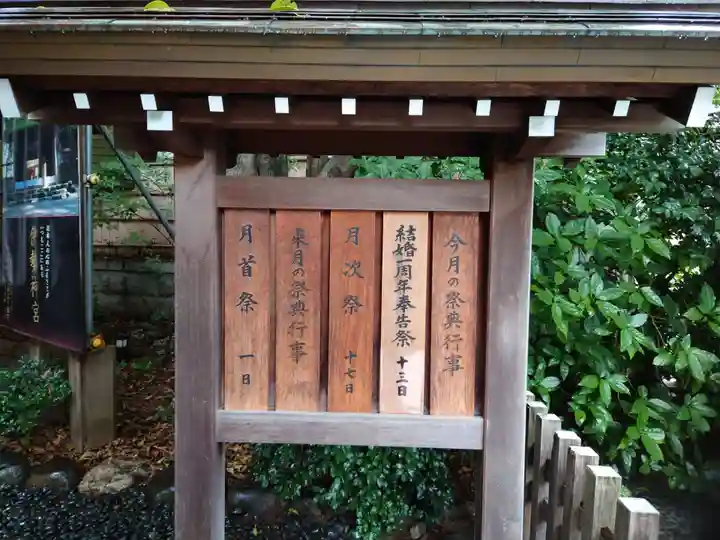 今月の祭典行事
結婚一周年奉告祭 十三日
月次祭 十七日
来月の祭典行事
月首祭 一日